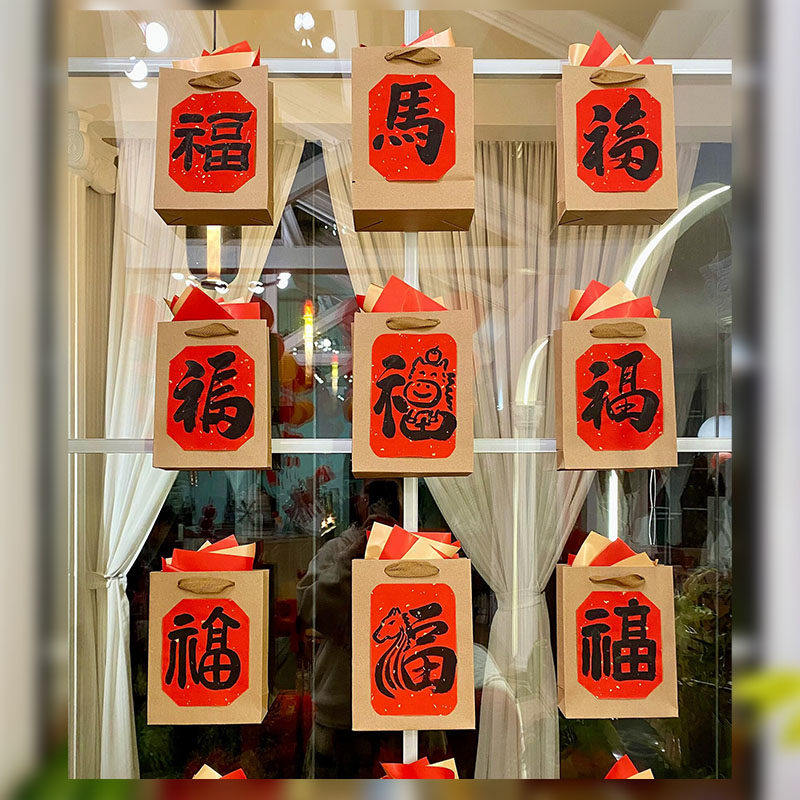 福 馬 福
福 福 福
福 福 福